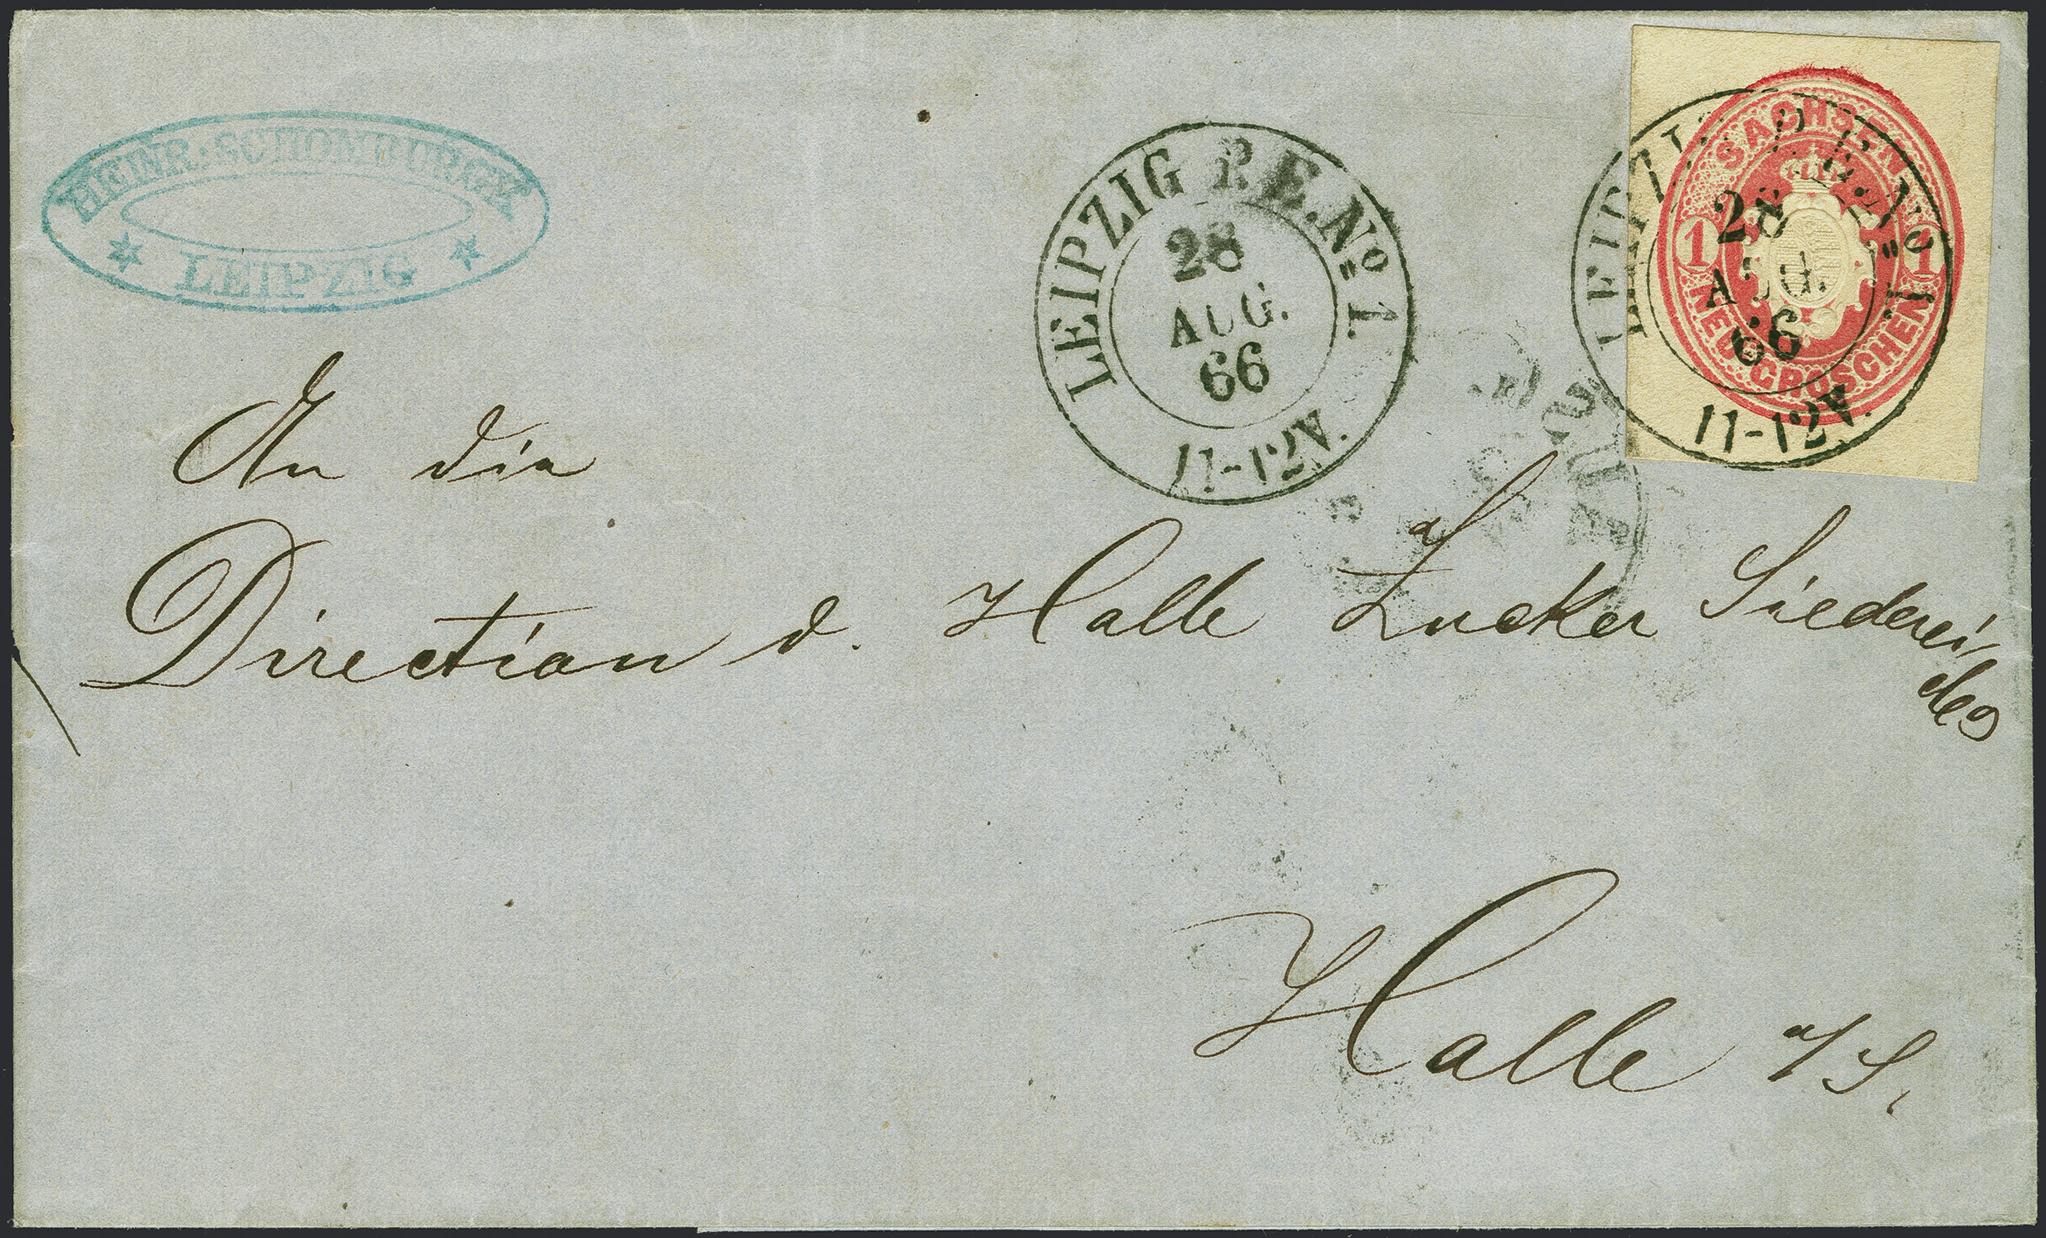 HEINR: SCHOMBURGK
LEIPZIG
LEIPZIG P.E. No 1.
28
AUG.
66
11-12V.
SACHSEN
1 1
NEUGROSCHEN
LEIPZIG P.E. No 1.
28
AUG.
66
11-12V.
An die
Direction d. Halle Zucker Siederei
Halle a/S.